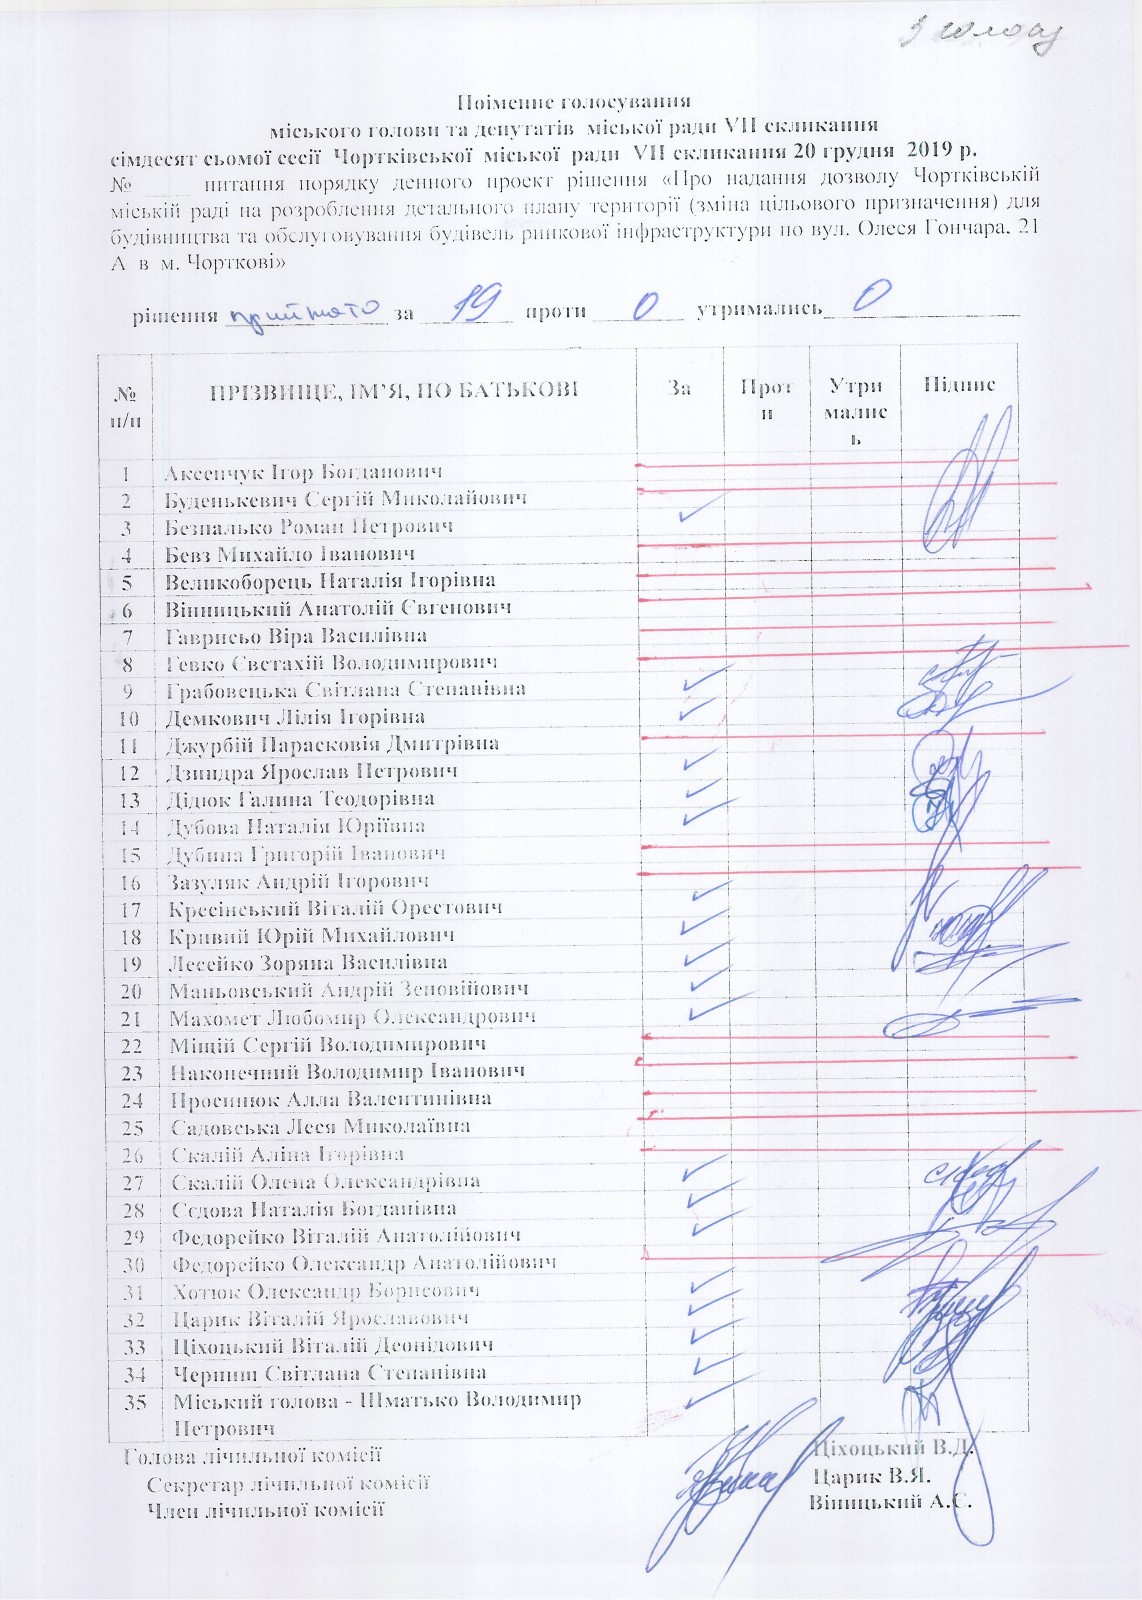 З голосу
Поіменне голосування
міського голови та депутатів міської ради VII скликання
сімдесят сьомої сесії Чортківської міської ради VII скликання 20 грудня 2019 р.
№ ____ питання порядку денного проект рішення «Про надання дозволу Чортківській
міській раді на розроблення детального плану території (зміна цільового призначення) для
будівництва та обслуговування будівель ринкової інфраструктури по вул. Олеся Гончара, 21
А в м. Чорткові»
рішення прийнято за 19 проти 0 утримались 0
№ п/п ПРІЗВИЩЕ, ІМ’Я, ПО БАТЬКОВІ За Проти Утримались Підпис
1 Аксенчук Ігор Богданович
2 Буденькевич Сергій Миколайович
3 Безпалько Роман Петрович
4 Бевз Михайло Іванович
5 Великоборець Наталія Ігорівна
6 Вінницький Анатолій Євгенович
7 Гаврисьо Віра Василівна
8 Гевко Євстахій Володимирович
9 Грабовецька Світлана Степанівна
10 Демкович Лілія Ігорівна
11 Джурбій Парасковія Дмитрівна
12 Дзиндра Ярослав Петрович
13 Дідюк Галина Теодорівна
14 Дубова Наталія Юріївна
15 Дубина Григорій Іванович
16 Зазуляк Андрій Ігорович
17 Кресінський Віталій Орестович
18 Кривий Юрій Михайлович
19 Лесейко Зоряна Василівна
20 Маньовський Андрій Зеновійович
21 Махомет Любомир Олександрович
22 Міщій Сергій Володимирович
23 Наконечний Володимир Іванович
24 Просинюк Алла Валентинівна
25 Садовська Леся Миколаївна
26 Скалій Аліна Ігорівна
27 Скалій Олена Олександрівна
28 Сєдова Наталія Богданівна
29 Федорейко Віталій Анатолійович
30 Федорейко Олександр Анатолійович
31 Хотюк Олександр Борисович
32 Царик Віталій Ярославович
33 Ціхоцький Віталій Леонідович
34 Черниш Світлана Степанівна
35 Міський голова - Шматько Володимир
Петрович
Голова лічильної комісії Ціхоцький В.Д.
Секретар лічильної комісії Царик В.Я.
Член лічильної комісії Віницький А.Є.